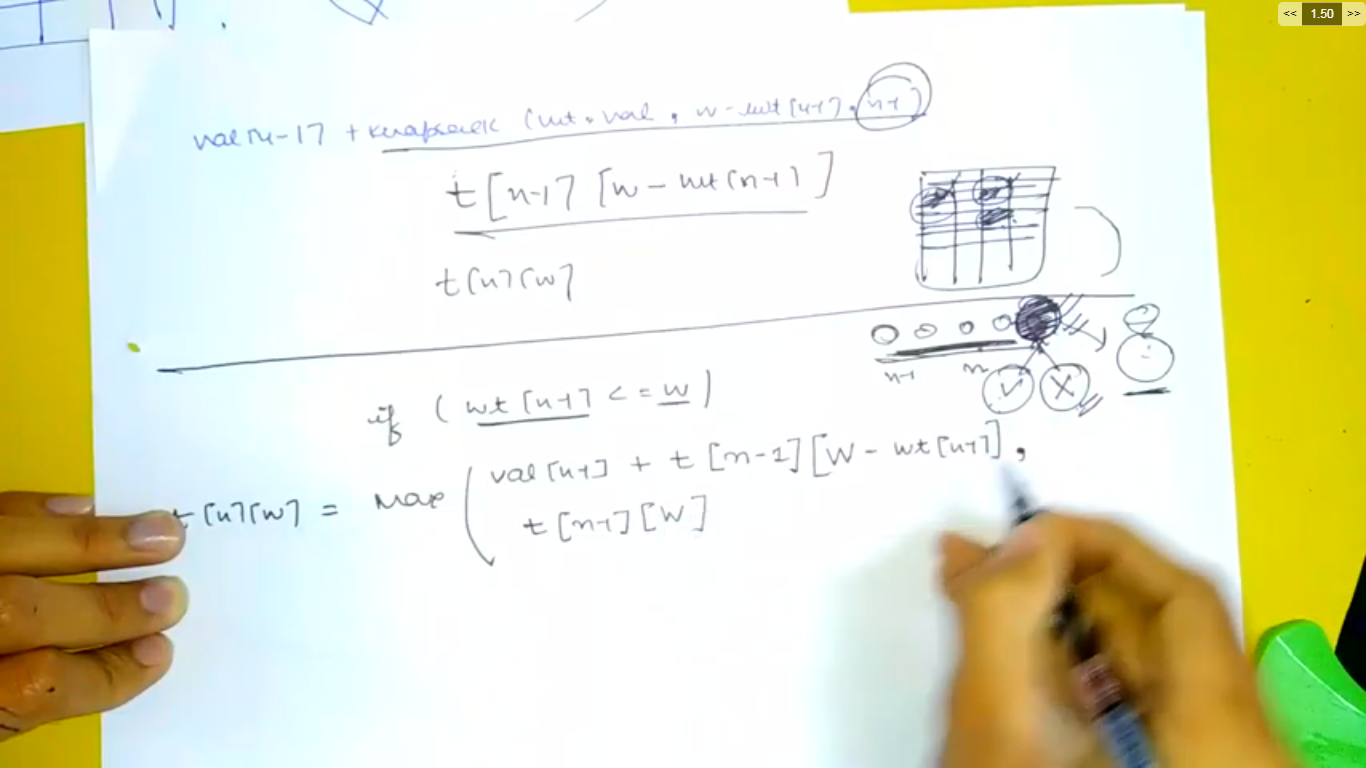 << 1.50 >>
val[n-1] + knapsack (wt, val, w-wt[n-1], n-1)
t[n-1][w-wt[n-1]]
t[n][w]
n-1 n
if (wt[n-1] <= w)
t[n][w] = Max (val[n-1] + t[n-1][W-wt[n-1]],
t[n-1][W]